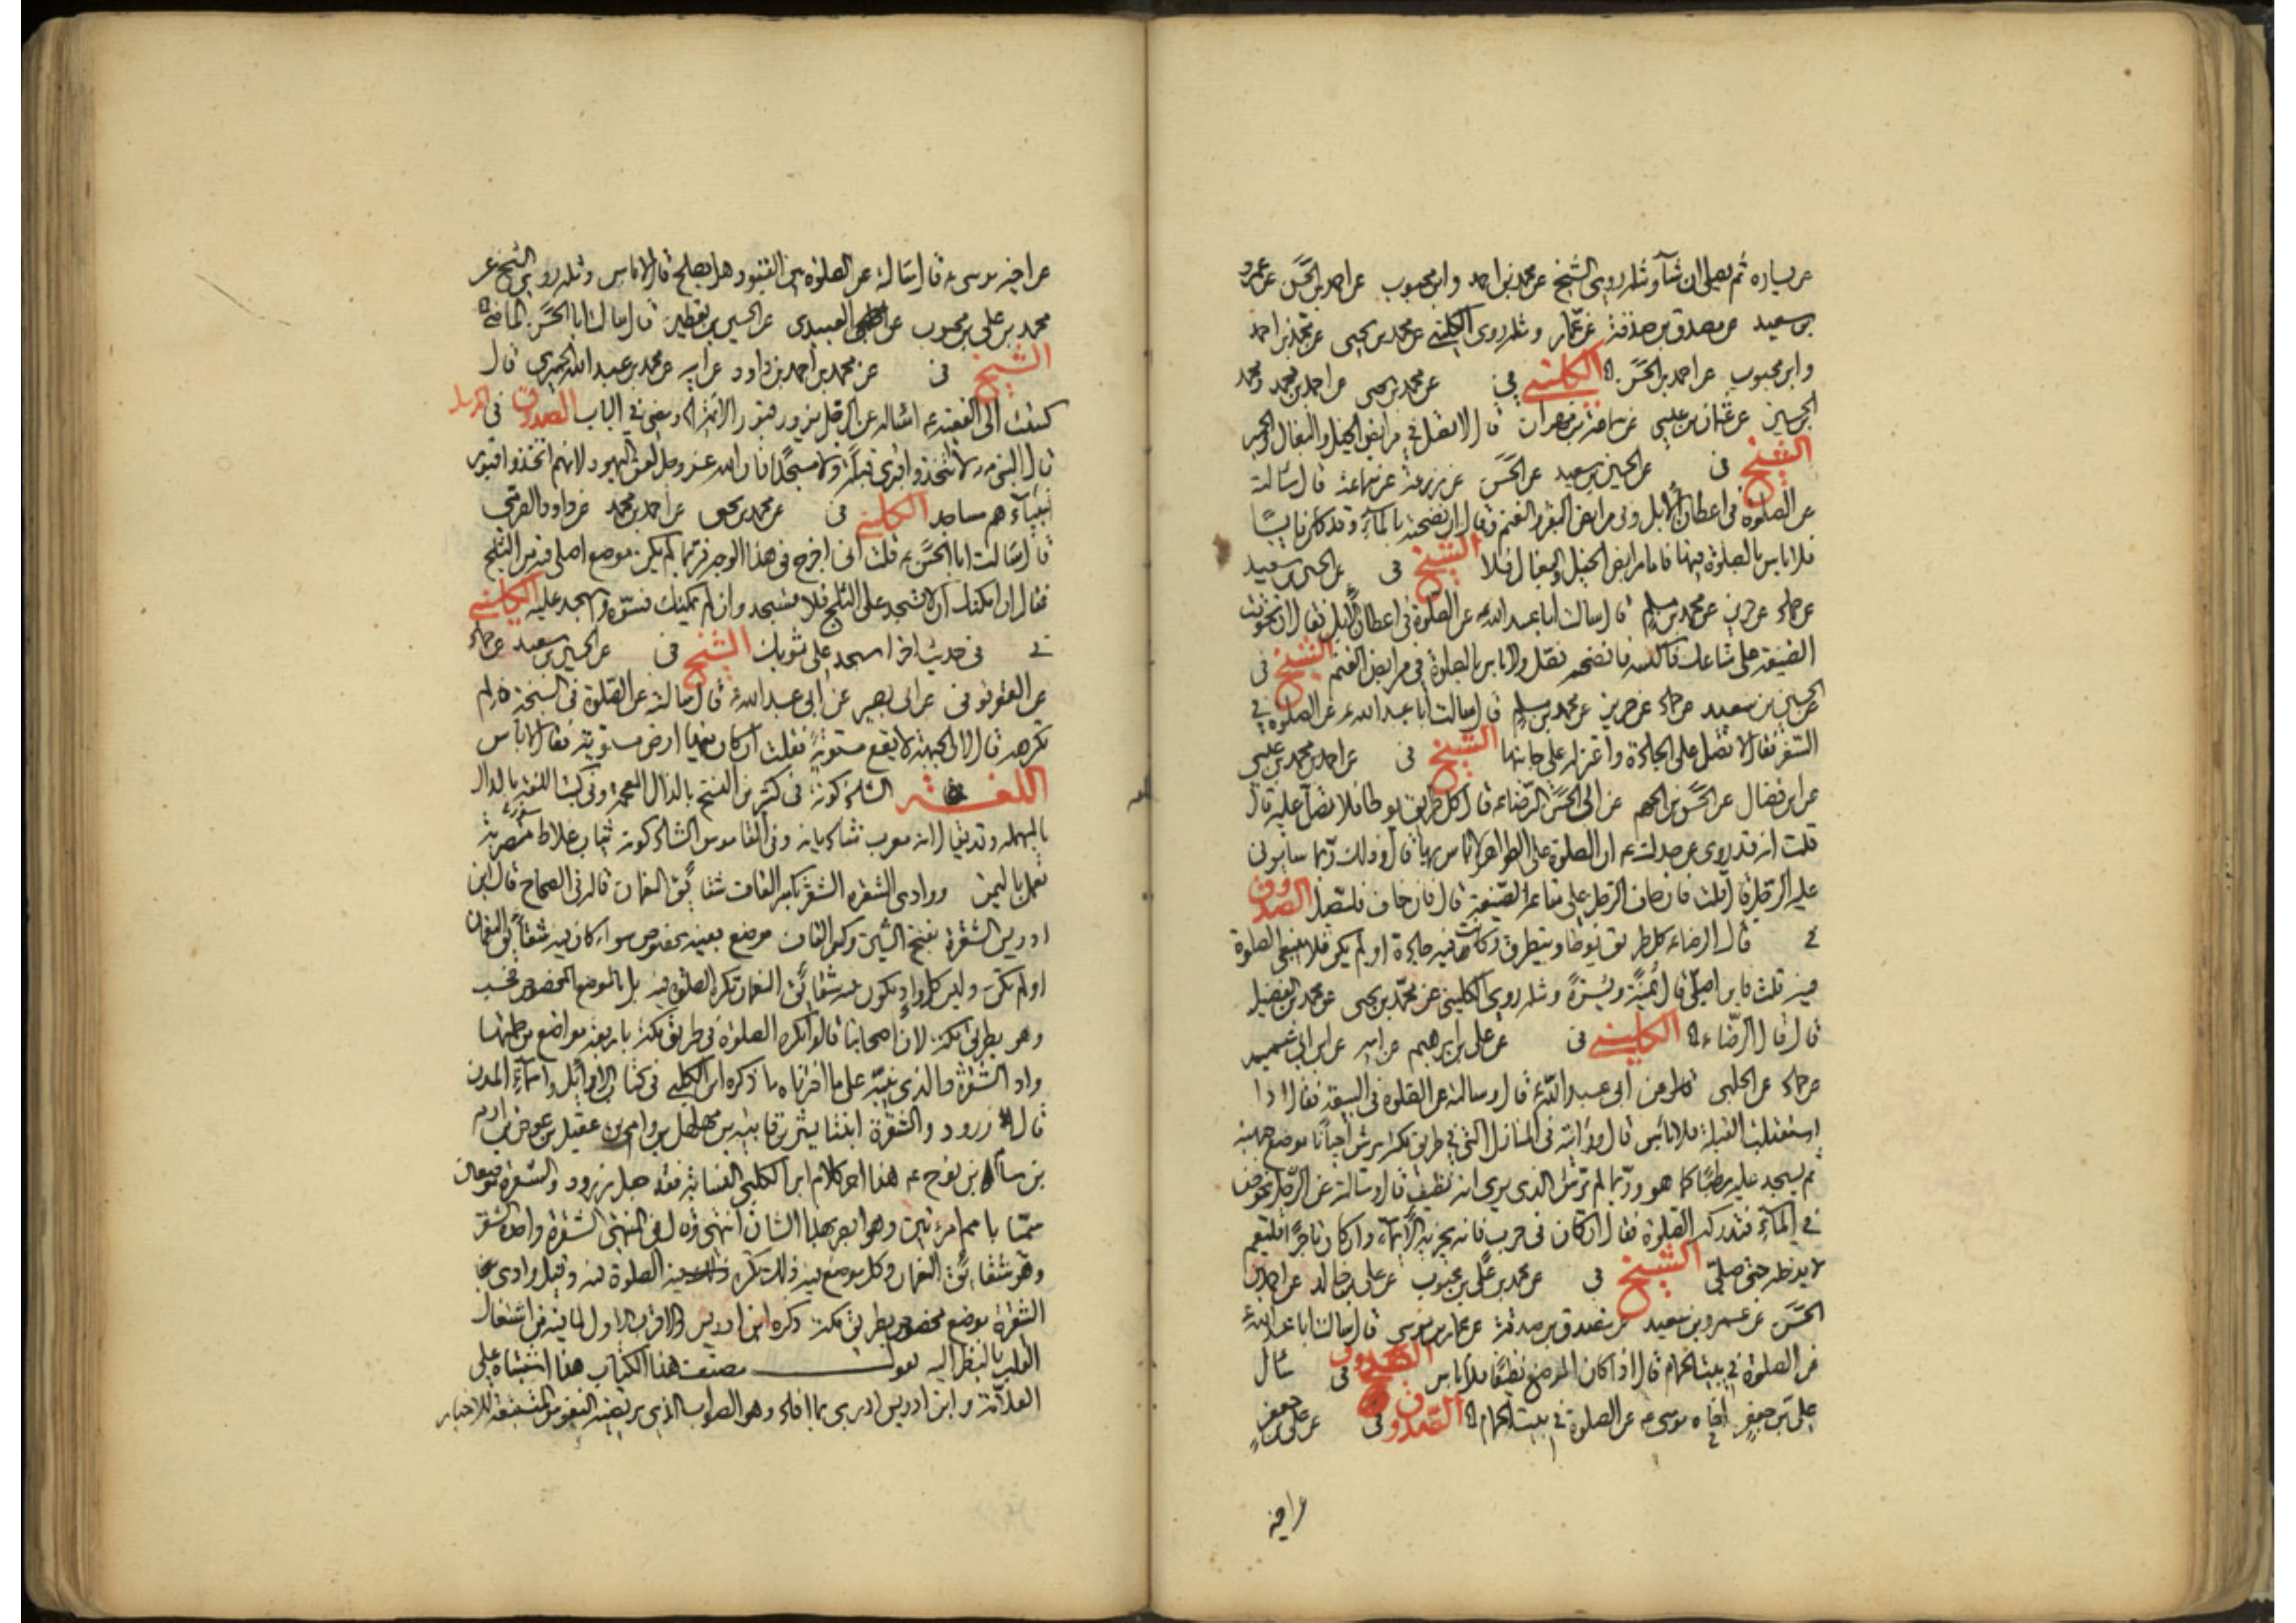 عن يساره ثم يصلي ان شآء ومثله روى الشيخ عن محمد بن احمد وابن محبوب عن احمد بن الحسن عن عمرو
بن سعيد عن مصدق بن صدقة عن عمار ومثله روى الكليني عن محمد بن يحيى عن محمد بن احمد
وابن محبوب عن احمد بن الحسن الكليني في عن محمد بن يحيى عن احمد بن محمد ومحمد
الحسين عن عثمان بن عيسى عن سماعة بن مهران قال لا تصل في مرابض الخيل والبغال والحمير
الشيخ في عن الحسين بن سعيد عن الحسن عن زرعة عن سماعة قال سالته
عن الصلوة في اعطان الابل وفي مرابض البقر والغنم فقال ان نضحته بالمآء وقد كان يابسًا
فلا باس بالصلوة فيها فاما مرابض الخيل والبغال فلا الشيخ في عن الحسين بن سعيد
عن حماد عن حريز عن محمد بن مسلم قال سالت ابا عبد الله عن الصلوة في اعطان الابل فقال ان تخوفت
الضيعة على متاعك فاكنسه وانضحه وصل ولا باس بالصلوة في مرابض الغنم الشيخ في
عن الحسين بن سعيد عن حماد عن حريز عن محمد بن مسلم قال سالت ابا عبد الله ع عن الصلوة في
السفر فقال لا تصل على الجادة واعتزل على جانبها الشيخ في عن احمد بن محمد بن عيسى
عن ابن فضال عن الحسن بن الجهم عن ابى الحسن الرضا ع قال كل طريق يوطا فلا تصل عليه قال
قلت انه قد روى عن جدك ع ان الصلوة على الظواهر لا باس بها قال وذلك ربما سايرني
عليه الرجل قال قلت فان خاف الرجل على متاعه الضيعة قال فان خاف فليصل الصدوق
في قال الرضا ع كل طريق يوطا ويتطرق وكانت فيه جادة او لم يكن فلا ينبغي الصلوة
فيه قلت فاين اصلي قال يمنة ويسرة ومثله روى الكليني عن محمد بن يحيى عن محمد بن الفضيل
قال قال الرضا ع الكليني في عن علي بن ابرهيم عن ابيه عن ابن ابي عمير
عن حماد عن الحلبي عن ابى عبد الله ع قال وسالته عن الصلوة في البيعة فقال اذا
استقبلت القبلة فلا باس قال ورايته في المنازل التي في طريق مكة يرش احيانا موضع جبهته
ثم يسجد عليه رطبًا كما هو وربما لم يرش الذي يرى انه نظيف قال وسالته عن الرجل يخوض
في المآء فتدركه الصلوة فقال ان كان في حرب فانه يجزيه الايمآء وان كان تاجرًا فليقم
لا يدخله حتى يصلي الشيخ في عن محمد بن علي بن محبوب عن علي بن خالد عن احمد بن
الحسن عن عمرو بن سعيد عن مصدق بن صدقة عن عمار بن موسى قال سالت ابا عبد الله ع
عن الصلوة في بيت الحمام قال اذا كان الموضع نظيفًا فلا باس الصدوق في سال
علي بن جعفر اخاه موسى ع عن الصلوة في بيت الحمام الصدوق في عن علي بن جعفر
عن اخيه
عن اخيه موسى ع قال سالته عن الصلوة بين القبور هل يصلح قال لا باس ومثله روى الشيخ عن
محمد بن علي بن محبوب عن العبيدي عن الحسين بن يقطين قال سالت ابا الحسن الماضي
الشيخ في عن محمد بن احمد بن داود عن ابيه عن محمد بن عبد الله الحميري قال
كتبت الى الفقيه ع اساله عن الرجل يزور قبور الائمة ومضى في الباب الصدوق في
قال النبي ص لا تتخذوا قبري قبلة ولا مسجدًا فان الله عز وجل لعن اليهود لانهم اتخذوا قبور
انبيآءهم مساجد الكليني في عن محمد بن يحيى عن احمد بن محمد عن داود الصرمي
قال سالت ابا الحسن ع قلت اني اخرج في هذا الوجه وربما لم يكن موضع اصلي فيه من الثلج
فقال ان امكنك ان لا تسجد على الثلج فلا تسجد وان لم يمكنك فسوّه واسجد عليه الكليني
في في حديث اخر اسجد على ثوبك الشيخ في عن الحسين بن سعيد عن حماد
عن العقرقوفي عن ابى بصير عن ابى عبد الله ع قال سالته عن الصلوة في السبخة لم
تكرهه قال لان الجبهة لا يقع مستوية فقلت ان كان فيها ارض مستوية فقال لا باس
اللغة الشاذكونة في كثير من النسخ بالذال المعجمة وفي كتب اللغة بالدال
بالمهملة وقد يقال انه معرب شادبانه وفي القاموس الشادكونة ثياب غلاظ مضربة
تعمل باليمن ووادى الشقرة الشقر بكسر القاف شقائق النعمان قاله في الصحاح قال ابن
ادريس الشقرة بفتح الشين وكسر القاف موضع بعينه مخصوص سواء كان فيه شقائق النعمان
او لم يكن وليس كل واد يكون فيه شقائق النعمان تكره الصلوة فيه بل بالموضع المخصوص فحسب
وهو بطريق مكة لان اصحابنا قالوا تكره الصلوة في طريق مكة باربعة مواضع من جملتها
واد الشقرة والذي ينبّه على ما اخترناه ما ذكره ابن الكلبي في كتاب الاوائل واسمآء المدن
قال زرود والشقرة ابنتا يثرب بن قابية بن مهلهل بن وام بن عقيل بن عوض بن ارم
بن سام بن نوح ع هذا اخر كلام ابن الكلبي النسابة فقد جعل زرود والشقرة موضعان
سميا باسم امراتين وهو ابصر بهذا الشان انتهى وقال في المنتهى الشقرة واحد الشقر
وهو شقائق النعمان وكل موضع فيه ذلك تكره الصلوة فيه وقيل وادى
الشقرة موضع مخصوص بطريق مكة ذكره ابن ادريس والاقرب الاول لما فيه من اشتغال
القلب بالنظر اليه يقول مصنف هذا الكتاب هذا اشتباه على
العلامة وابن ادريس ادرى بما افاد وهو الصواب الذي يرتضيه المتتبعة للاخبار